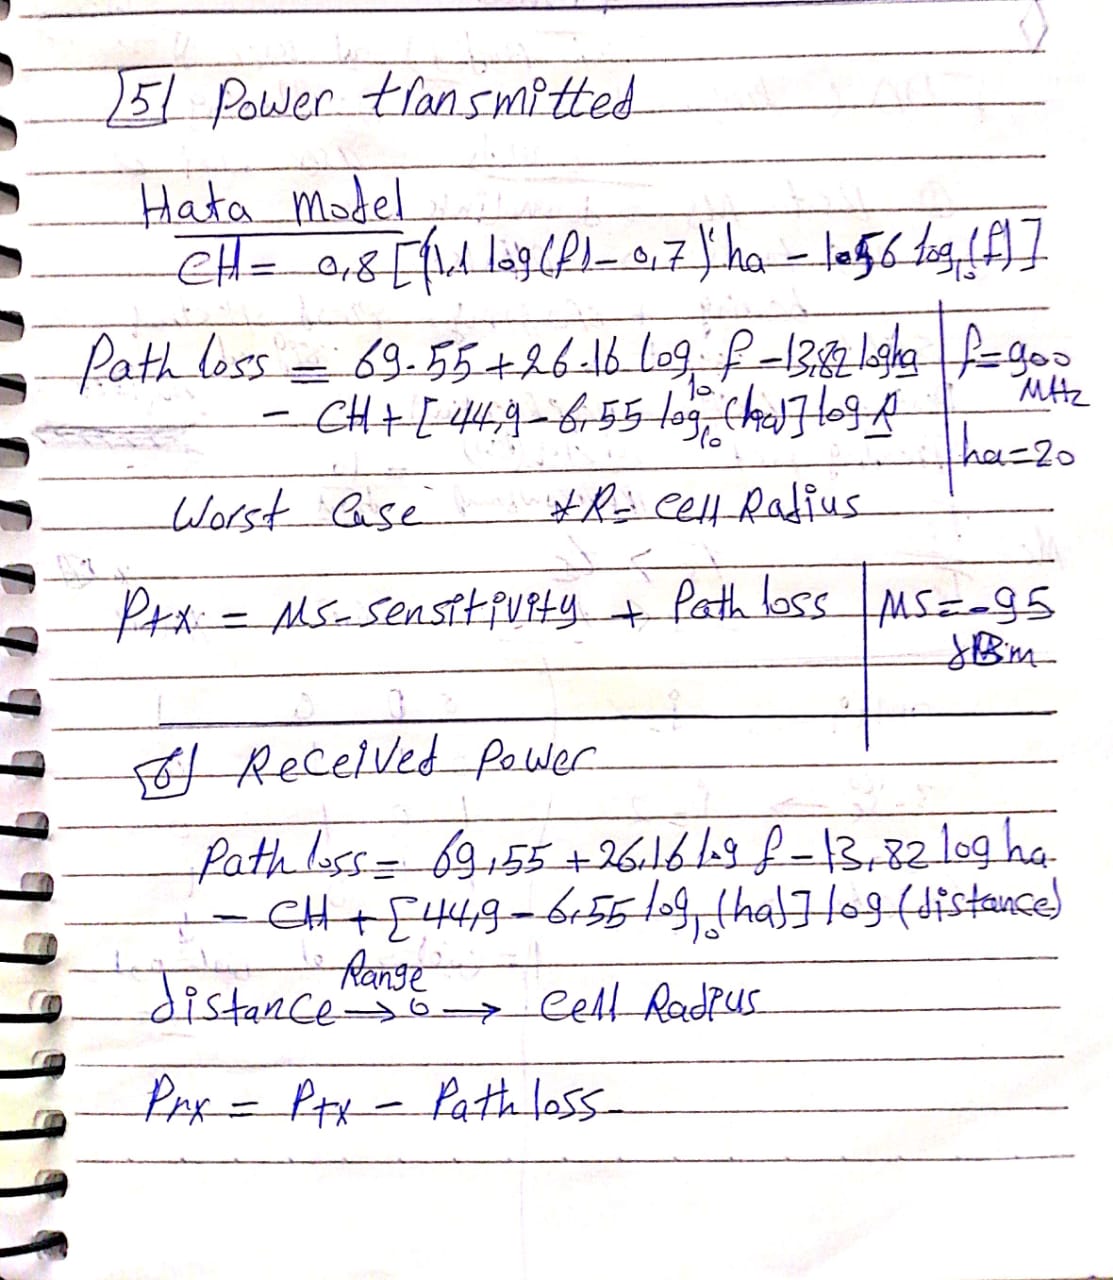 [5] Power transmitted
Hata Model
CH = 0,8 [(1,1 log(f) - 0,7) ha - 1.56 log10(f)]
Path loss = 69.55 + 26.16 log10 f - 13,82 log ha
- CH + [44,9 - 6,55 log10 (ha)] log R
f = 900
MHz
ha = 20
Worst Case * R = Cell Radius
Ptx = MS-sensitivity + Path loss
MS = -95
dBm
[6] Received Power
Path loss = 69,55 + 26,16 log f - 13,82 log ha
- CH + [44,9 - 6,55 log10 (ha)] log (distance)
Range
distance → 0 → Cell Radius
Prx = Ptx - Path loss